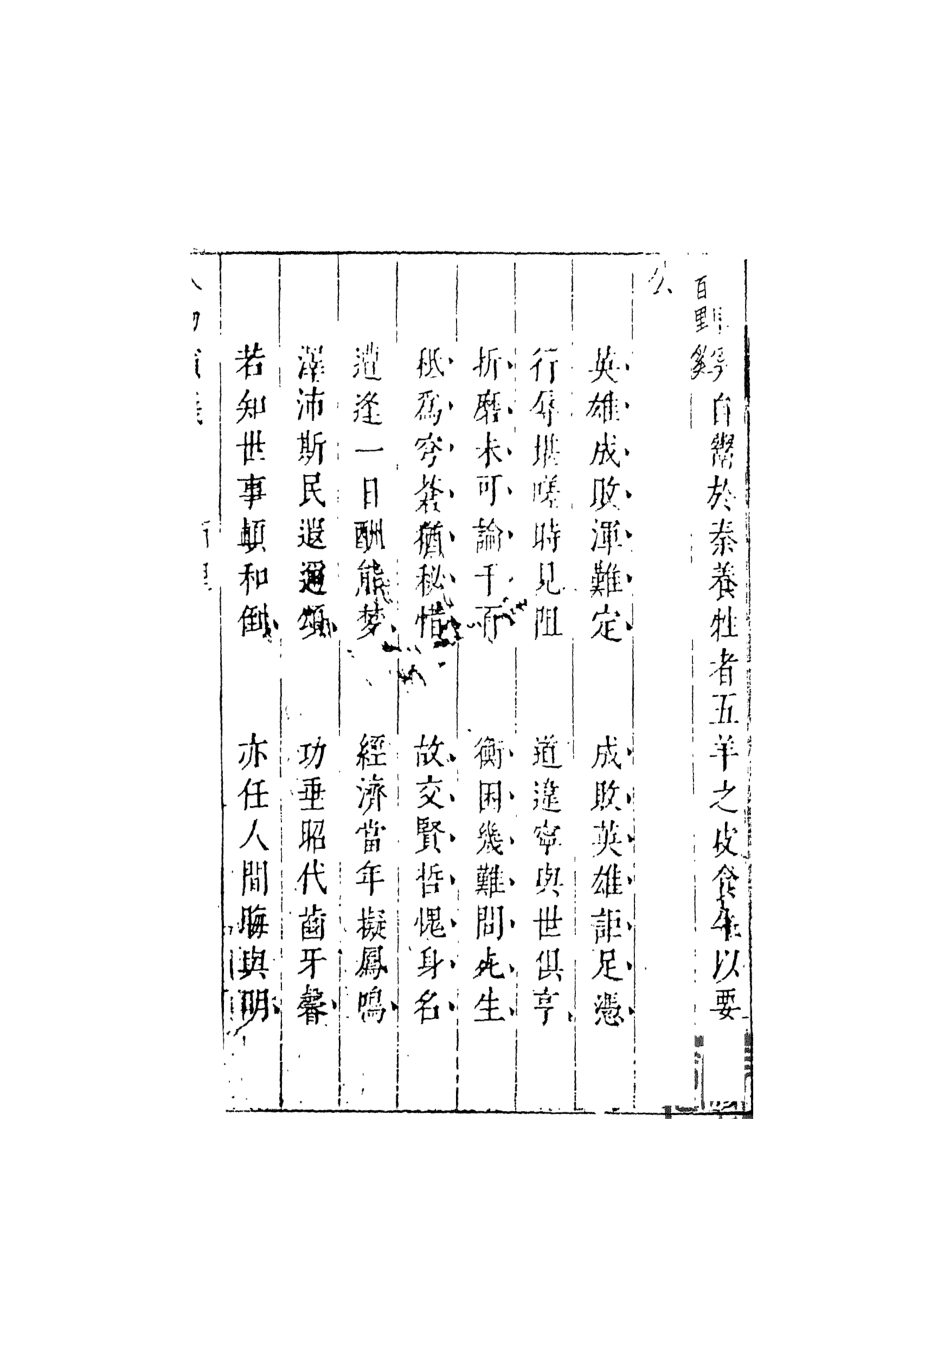 百里奚自鬻於秦養牲者五羊之皮食牛以要
公
英雄成敗渾難定　成敗英雄詎足憑
行辱堪嗟時見阻　道違寧與世俱亨
折磨未可論千百　衡困幾難問先生
秪爲穷蒼猶秘惜　故交賢哲愧身名
遭逢一日酬熊梦　經濟當年擬鳳鳴
澤沛斯民遐邇頌　功垂昭代齒牙馨
若知世事顛和倒　亦任人間晦與明